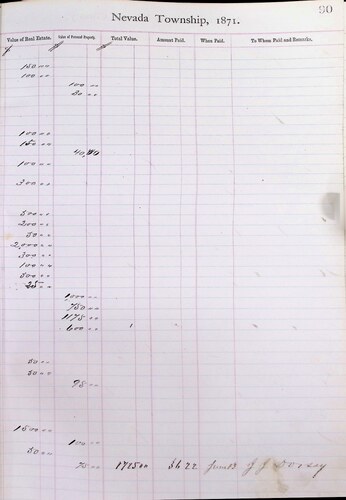 90
Nevada Township, 1871.
Value of Real Estate. Value of Personal Property. Total Value. Amount Paid. When Paid. To Whom Paid and Remarks.
150 00
100 00
100 00
50 00
100 00
150 00
40,00
100 00
300 00
500 00
200 00
50 00
2,000 00
300 00
100 00
500 00
25 00
1000 00
750 00
1175 00
600 00
50 00
50 00
75 00
1500 00
100 00
50 00
75 00 1725 00 36 22 June 13 J. J. Dorsey